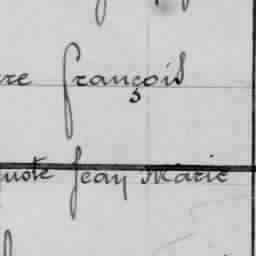 re François
uste Jean Marie